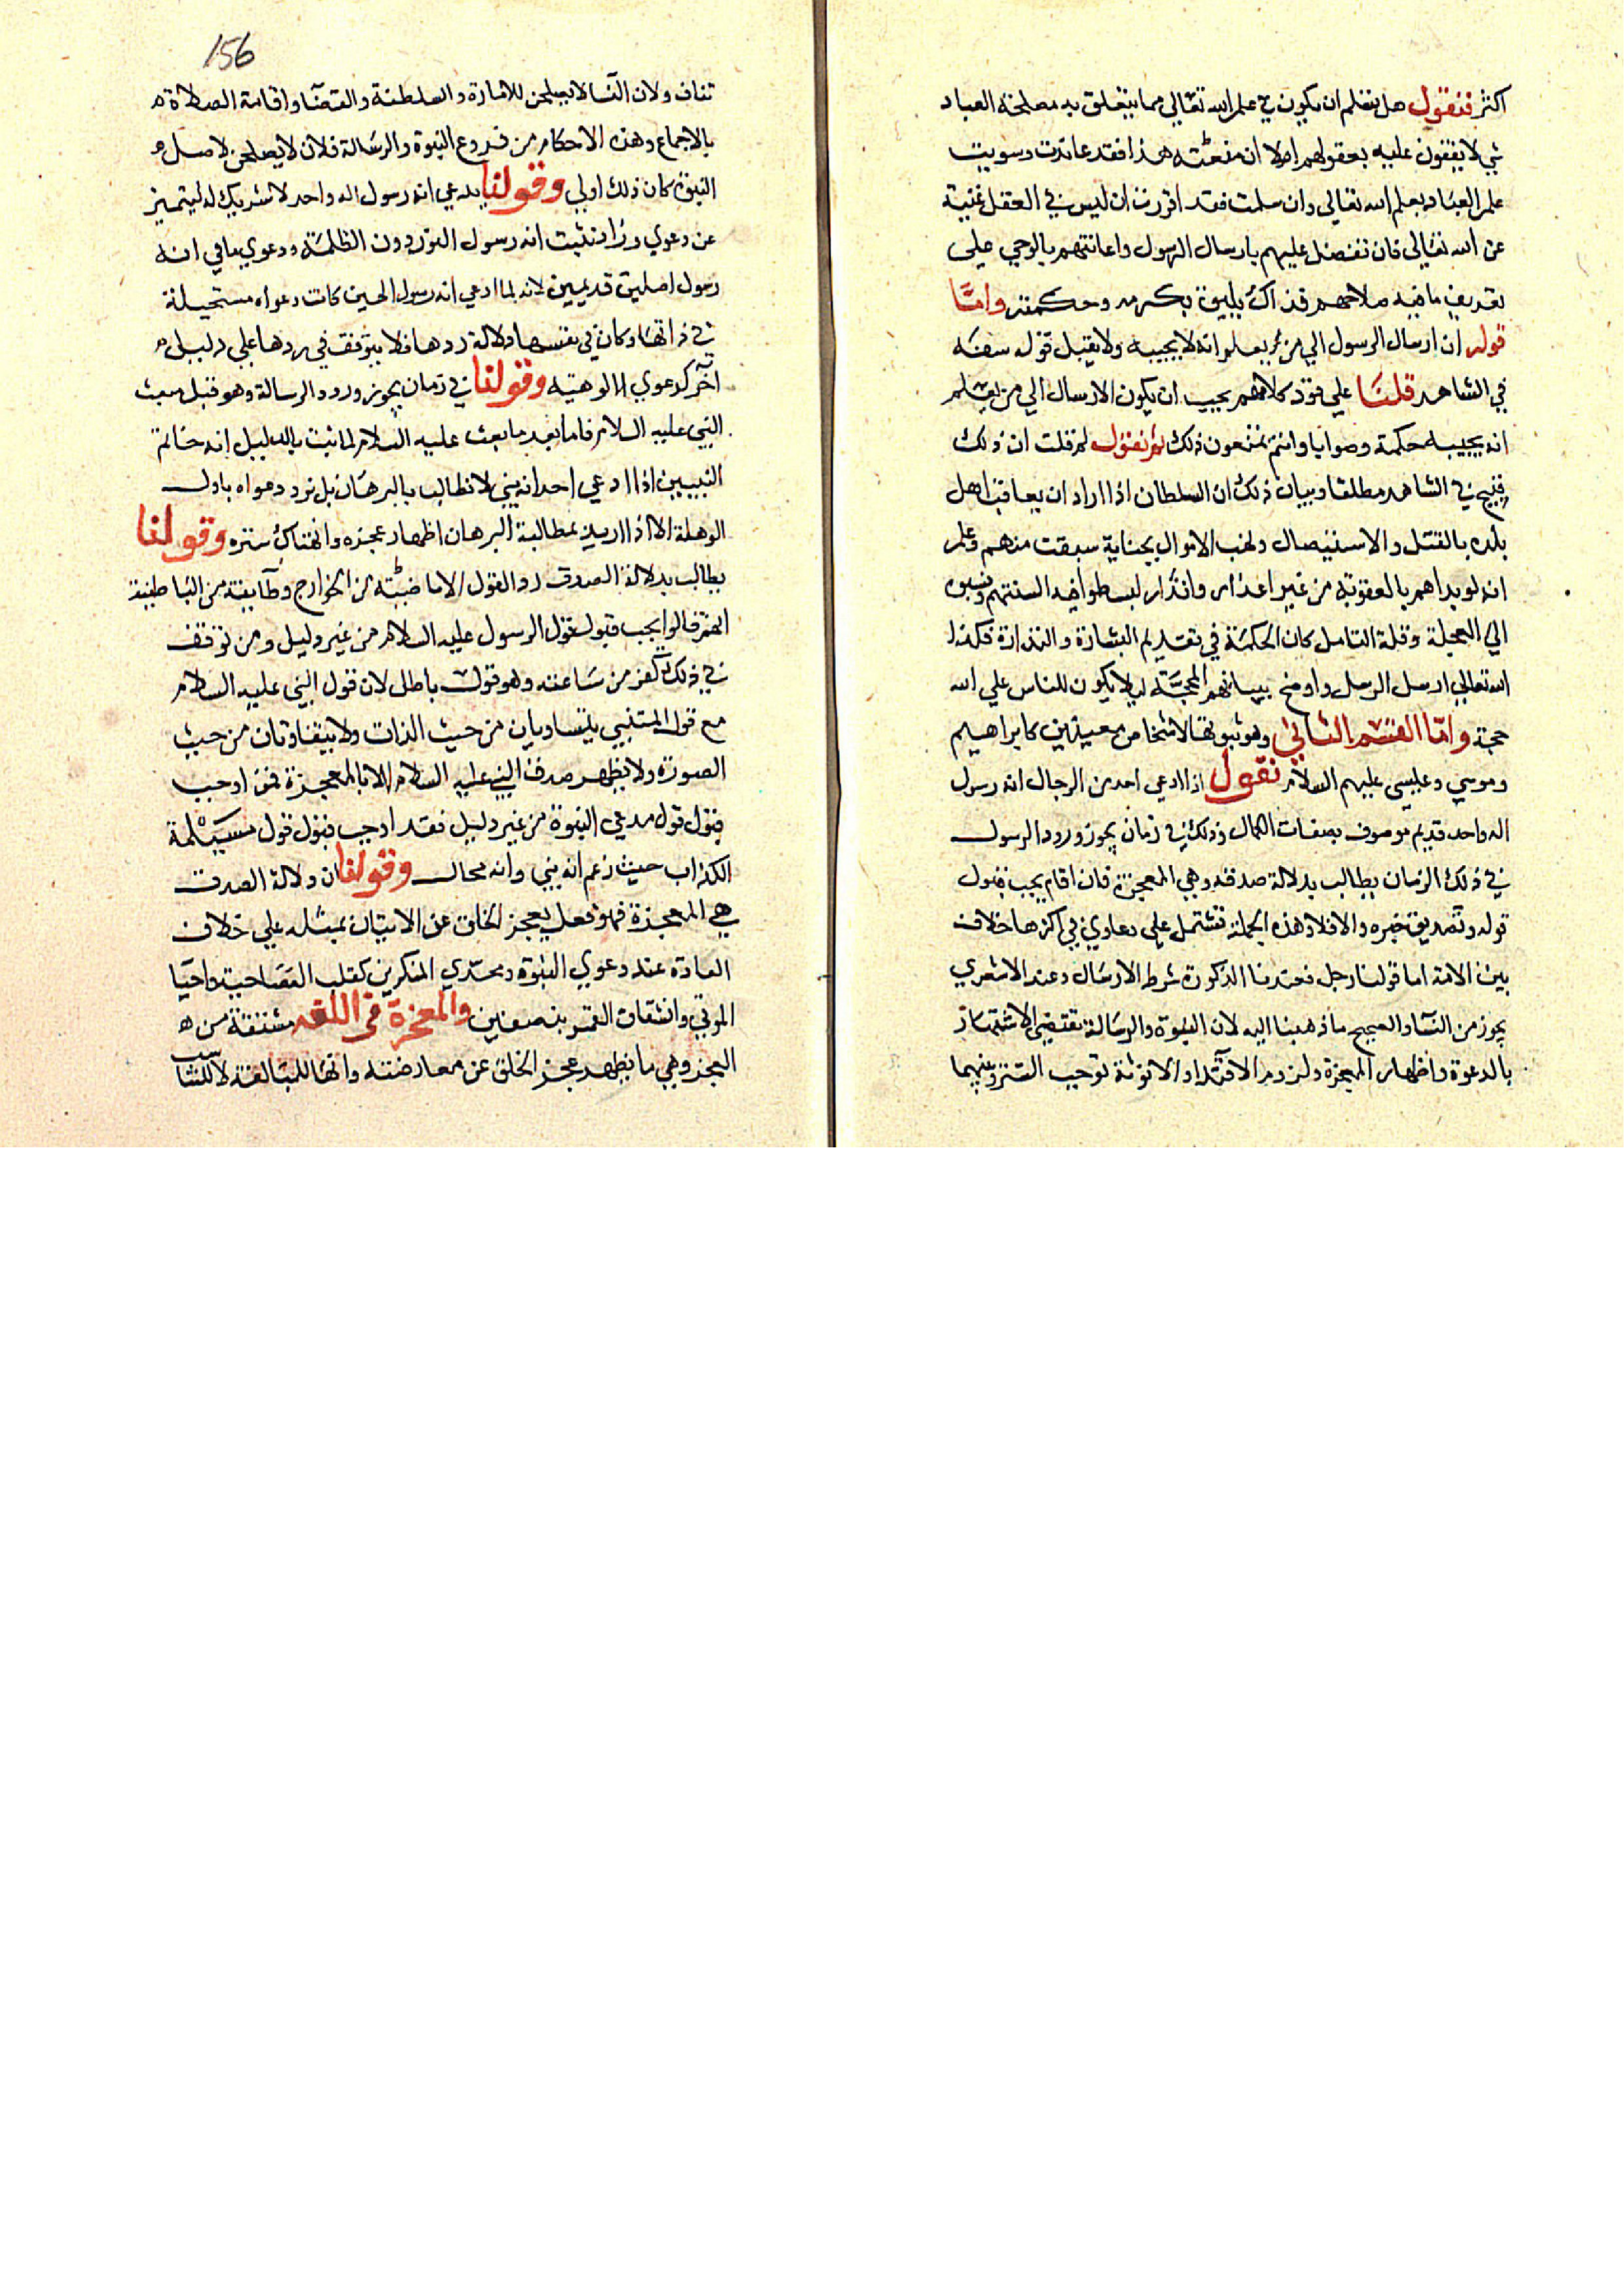 اكثر فنقول هل يتعلم ان يكون في علم الله تعالي مما يتعلق به مصلحة العباد
شي لا يقفون عليه بعقولهم ام لا ان منعته هذا فقد عاندت وسويت
علم العباد بعلم الله تعالي وان سلمت فقد اقررت ان ليس في العقل غنية
عن الله تعالي فان تفضل عليهم بارسال الرسول واعانتهم بالوحي علي
تعريف ما فيه صلاحهم فذاك يليق بكرمه وحكمته واما
قوله ان ارسال الرسول الي من يعلم انه لا يجيبه ولا يقبل قوله سفه
في الشاهد قلنا علي قود كلامهم يجب ان يكون الارسال الي من يعلم
انه يجيبه حكمة وصوابا وانتم تمنعون ذلك ثم نقول لم قلت ان ذلك
قبيح في الشاهد مطلقا وبيان ذلك ان السلطان اذا اراد ان يعاقب اهل
بلده بالقتل والاستيصال ونهب الاموال بجناية سبقت منهم وعلم
انه لو بداهم بالعقوبة من غير اعذار وانذار لبسطوا فيه السنتهم ونسبوه
الي العجلة وقلة التامل كان الحكمة في تقديم البشارة والنذارة فكذا
الله تعالي ارسل الرسل واوضح ببيانهم الحجة ليلا يكون للناس علي الله
حجة واما القسم الثاني وهو ثبوتها لاشخاص معينين كابراهيم
وموسي وعيسي عليهم السلام نقول اذا ادعي احد من الرجال انه رسول
اله واحد قديم موصوف بصفات الكمال وذلك في زمان يجوز ورود الرسول
في ذلك الزمان يطالب بدلالة صدقه وهي المعجزة فان اقام يجب قبول
قوله وتصديق خبره والا فلا وهذه الجملة تشتمل علي دعاوي في اكثرها خلاف
بين الامة اما قولنا رجل فعندنا الذكورة شرط الارسال وعند الاشعري
يجوز من النسا والصحيح ما ذهبنا اليه لان النبوة والرسالة تقتضي الاشتهار
بالدعوة واظهار المعجزة ولزوم الاقتدا والانوثة توجب الستر وبينهما
156
تناف ولان النسا لا يصلحن للامارة والسلطنة والقضا واقامة الصلاة
بالاجماع وهذه الاحكام من فروع النبوة والرسالة فلان لا يصلحن لاصل
النبوة كان ذلك اولي وقولنا يدعي انه رسول اله واحد لا شريك له ليتميز
عن دعوي زرادشت انه رسول النور دون الظلمة ودعوي ماني انه
رسول اصلين قديمين لانه لما ادعي انه رسول الهين كانت دعواه مستحيلة
في ذاتها وكان في نفسها دلالة ردها فلا يتوقف في ردها علي دليل
آخر كدعوي الالوهية وقولنا في زمان يجوز ورود الرسالة وهو قبل مبعث
النبي عليه السلام فاما بعد ما بعث عليه السلام لما ثبت بالدليل انه خاتم
النبيين اذا ادعي احد انه نبي لا نطالب بالبرهان بل نرد دعواه باول
الوهلة الا اذا اريد بمطالبة البرهان اظهار عجزه وانهتاك ستره وقولنا
يطالب بدلالة الصدق رد القول الاباضية من الخوارج وطايفة من الباطنية
انهم قالوا يجب قبول قول الرسول عليه السلام من غير دليل ومن توقف
في ذلك كفر من ساعته وهو قول باطل لان قول النبي عليه السلام
مع قول المتنبي يتساويان من حيث الذات ولا يتفاوتان من حيث
الصورة ولا يظهر صدق النبي عليه السلام الا بالمعجزة فمن اوجب
قبول قول مدعي النبوة من غير دليل فقد اوجب قبول قول مسيلمة
الكذاب حيث زعم انه نبي وانه محال وقولنا ان دلالة الصدق
هي المعجزة فهو فعل يعجز الخلق عن الاتيان بمثله علي خلاف
العادة عند دعوي النبوة وتحدي المنكرين كقلب العصا حية واحيا
الموتي وانشقاق القمر بنصفين والمعجزة في اللغة مشتقة من
العجز وهي ما يظهر عجز الخلق عن معارضته والها للمبالغة لا للتانيث